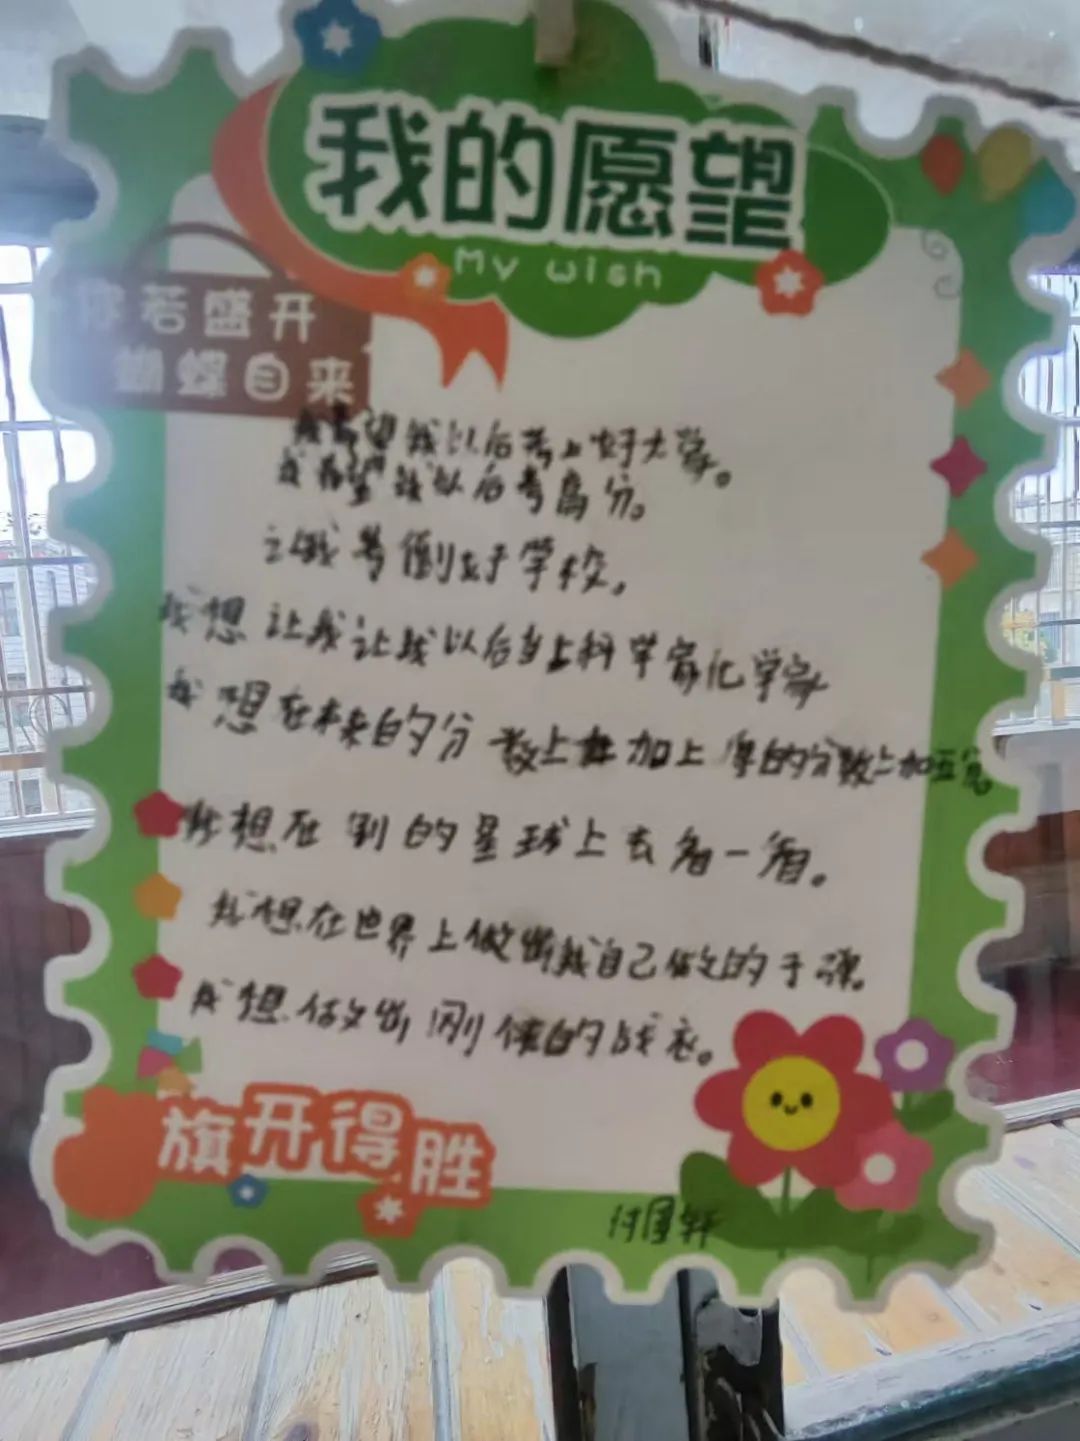 我的愿望
My wish
你若盛开
蝴蝶自来
我希望我以后考上好大学。
我希望我以后考高分。
让我考倒好学校。
我想让我让我以后当上科学家化学家
我想在本来的分数上加上 的分数上加五分
我想在别的星球上去看一看。
我想在世界上做出我自己做的手
我想做出刚 的战衣。
旗开得胜
轩